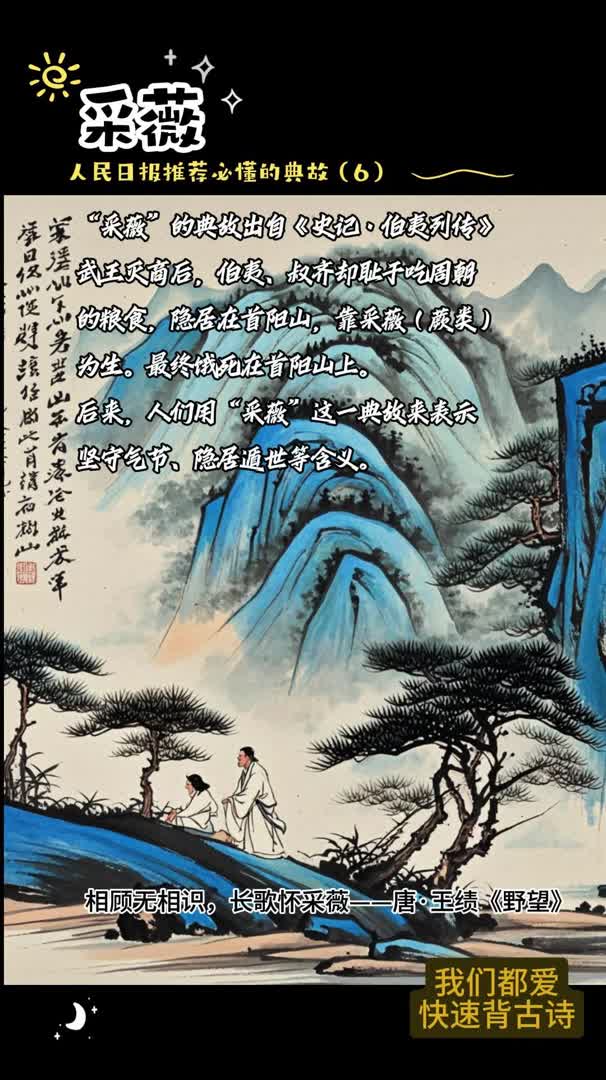 采薇
人民日报推荐必懂的典故（6）
“采薇”的典故出自《史记·伯夷列传》
武王灭商后，伯夷、叔齐却耻于吃周朝
的粮食，隐居在首阳山，靠采薇（蕨类）
为生。最终饿死在首阳山上。
后来，人们用“采薇”这一典故来表示
坚守气节、隐居遁世等含义。
相顾无相识，长歌怀采薇——唐·王绩《野望》
我们都爱
快速背古诗